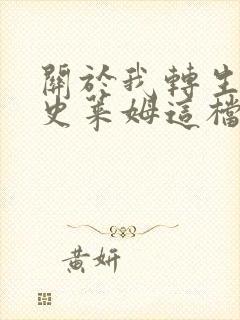 關於我轉生
史萊姆這檔
黃妍